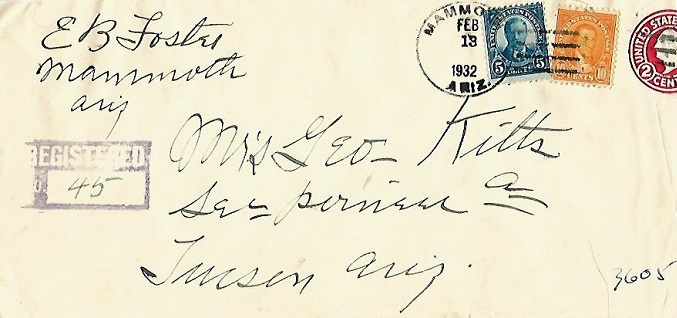 E B Foster
Mammoth
Ariz
MAMMO
FEB
13
1932
ARIZ.
5 5
10
CENTS
UNITED STATES
2
CENT
REGISTERED
45
Mrs Geo Kitts
Tucson Ariz.
3605